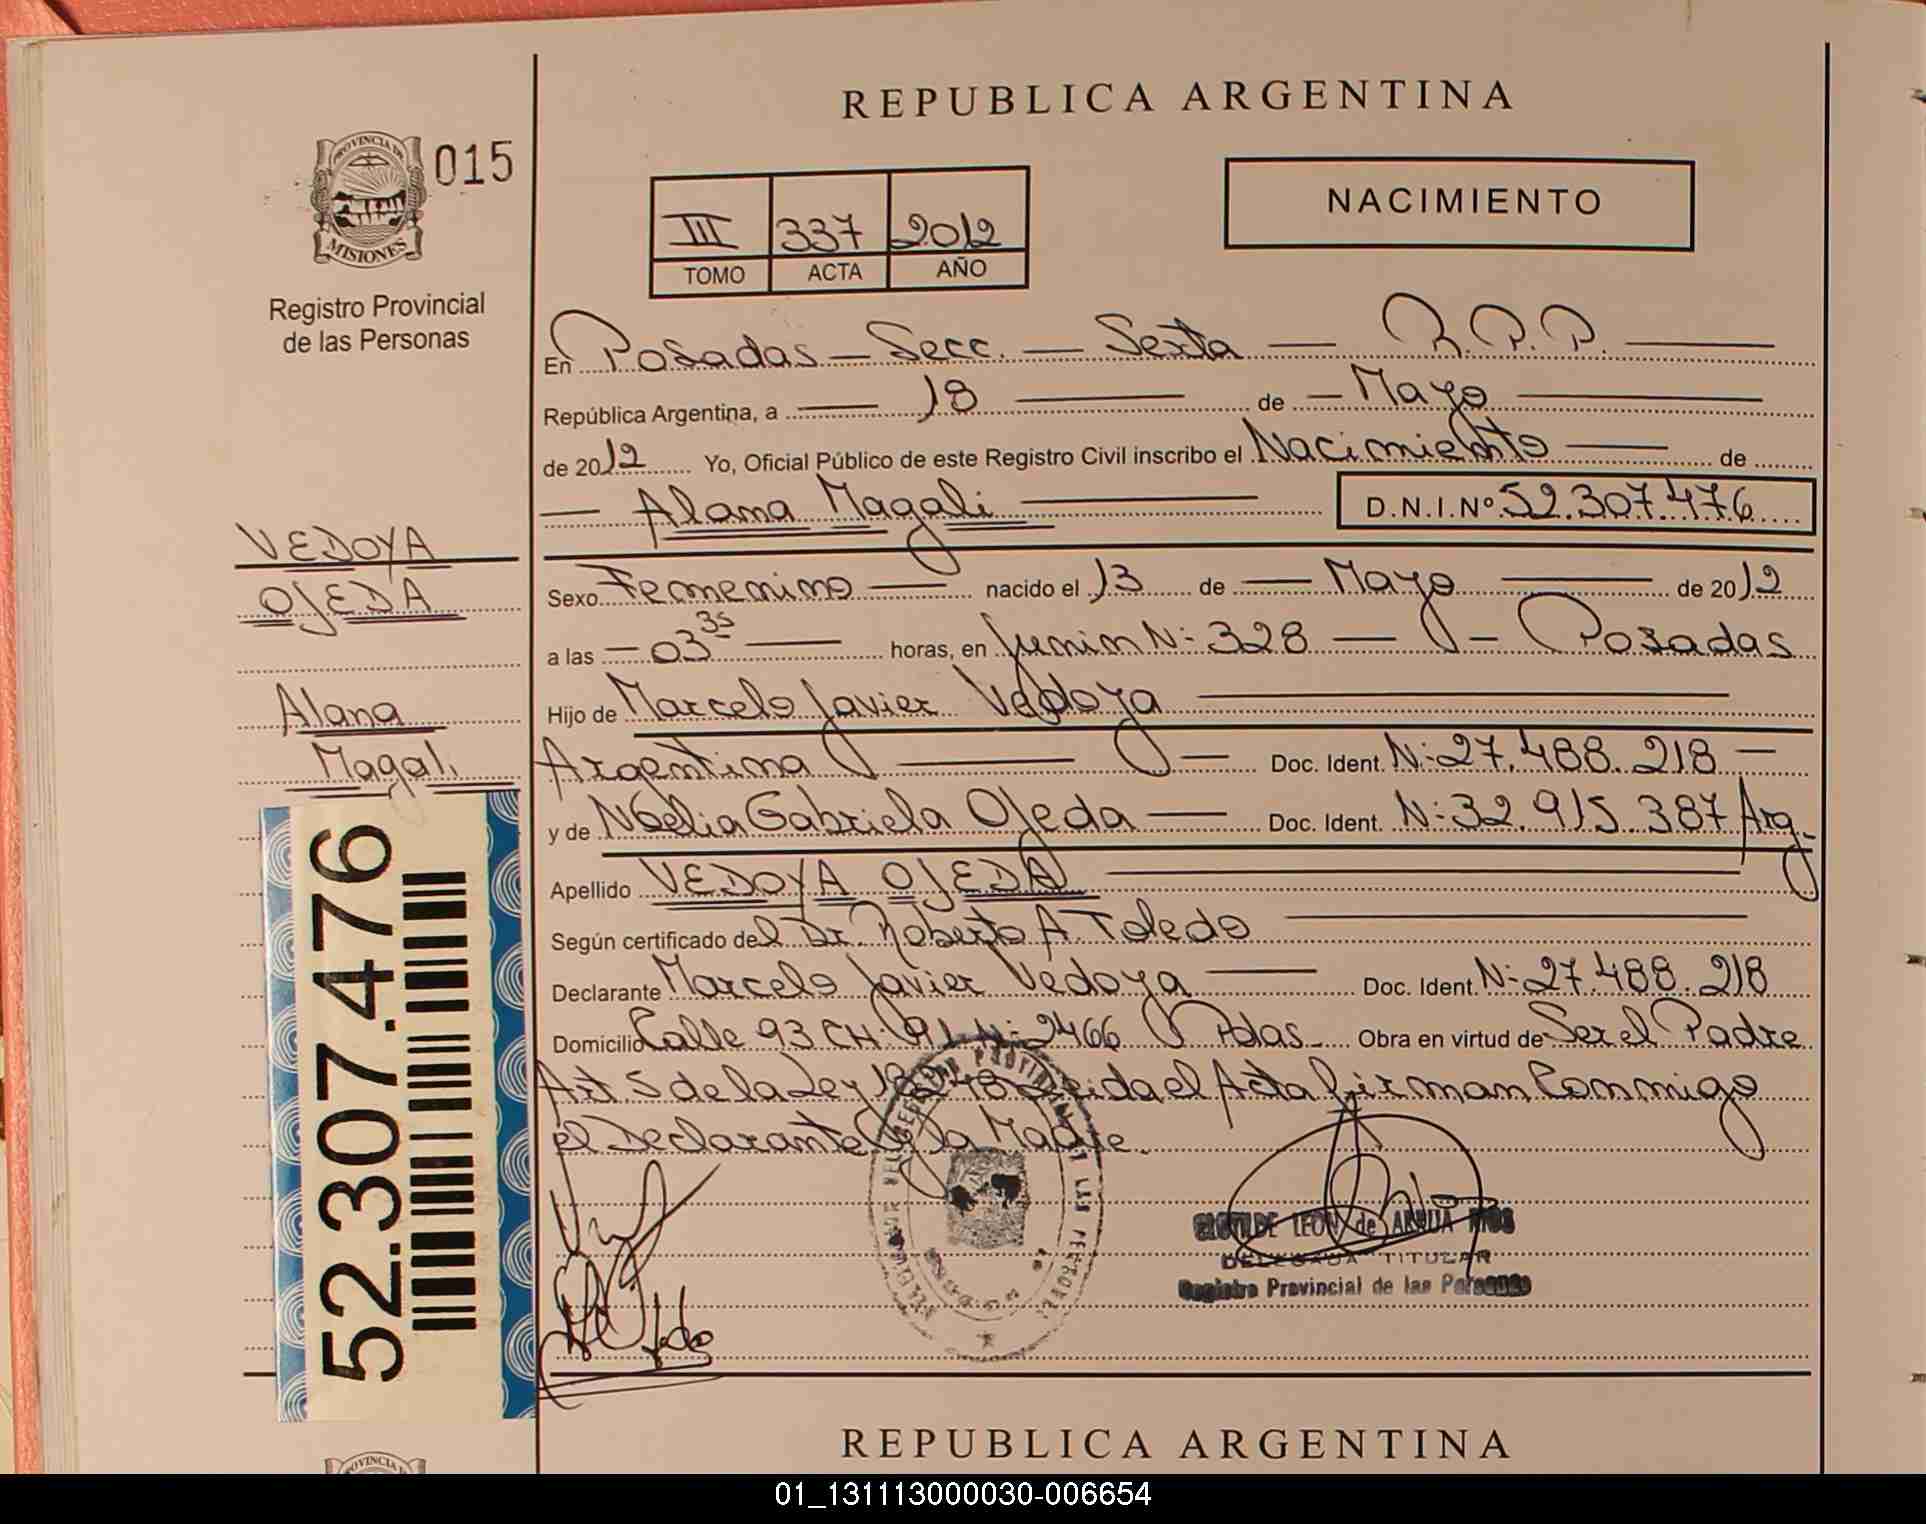 REPUBLICA ARGENTINA
PROVINCIA DE
MISIONES
015
Registro Provincial
de las Personas
NACIMIENTO
III 337 2012
TOMO ACTA AÑO
En Posadas - Secc. - Sexta - R.P.P.
República Argentina, a 18 de Mayo
de 2012 Yo, Oficial Público de este Registro Civil inscribo el Nacimiento de
Alana Magali D.N.I.Nº 52.307.476
VEDOYA
OJEDA
Alana
Magali
52.307.476
Sexo Femenino nacido el 13 de Mayo de 2012
a las 03 35 horas, en Junin N: 328 - Posadas
Hijo de Marcelo Javier Vedoya
Argentina Doc. Ident. N: 27.488.218
y de Noelia Gabriela Ojeda Doc. Ident. N: 32.915.387 Arg.
Apellido VEDOYA OJEDA
Según certificado del Dr. Roberto A Toledo
Declarante Marcelo Javier Vedoya Doc. Ident. N: 27.488.218
Domicilio Calle 93 CH: 91 N: 2466 Pdas. Obra en virtud de Ser el Padre
Art 5 de la Ley Leida el Acta firman Conmigo
el Declarante y la Madre.
LEON de
DELEGADA TITULAR
Registro Provincial de las Personas
REPUBLICA ARGENTINA
01_131113000030-006654